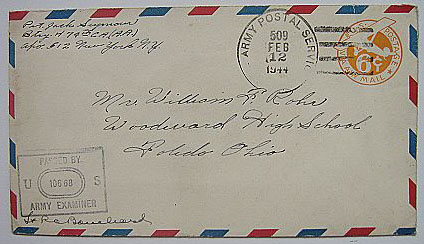 Pvt. Jack Seymour
Btry. 79th CA (AA)
Apo. 612 New York N.Y.
ARMY POSTAL SERVICE
509
FEB
12
1944
POSTAGE
6¢
AIR MAIL
Mr. William F. Rohr
Woodward High School
Toledo Ohio
PASSED BY
U 10668 S
ARMY EXAMINER